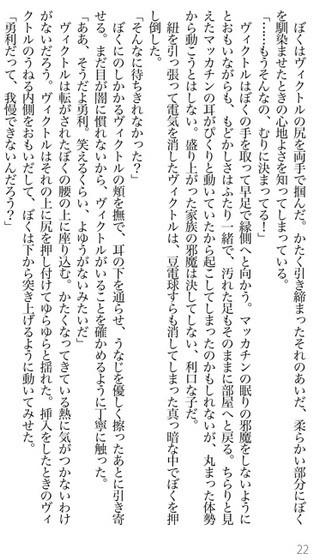 ぼくはヴィクトルの尻を両手で掴んだ。かたく引き締まったそれのあいだ、柔らかい部分にぼく
を馴染ませたときの心地よさを知ってしまっている。
「……もうそんなの、むりに決まってる！」
ヴィクトルはぼくの手を取って早足で縁側へと向かう。マッカチンの眠りの邪魔をしないように
とおもいながらも、もどかしさはふたり一緒で、汚れた足もそのままに部屋へと戻る。ちらりと見
えたマッカチンの耳がぴくりと動いていたから起こしてしまったのかもしれないが、丸まった体勢
から動こうとはしない。盛り上がった家族の邪魔は決してしない、利口な子だ。
紐を引っ張って電気を消したヴィクトルは、豆電球すらも消してしまった真っ暗な中でぼくを押
し倒した。
「そんなに待ちきれなかった？」
ぼくにのしかかるヴィクトルの頬を撫で、耳の下を通らせ、うなじを優しく擦ったあとに引き寄
せる。まだ目が闇に慣れないから、ヴィクトルがいることを確かめるように丁寧に触った。
「ああ、そうだよ勇利。笑えるくらい、よゆうがないみたいだ」
ヴィクトルは転がされたぼくの腰の上に座り込む。かたくなってきている熱に気がつかないわけ
がないだろう。ヴィクトルはそれの上に尻を押し付けてゆらゆらと揺れた。挿入をしたときのヴィ
クトルのうねる内側をおもいだして、ぼくは下から突き上げるように動いてみせた。
「勇利だって、我慢できないんだろう？」
22